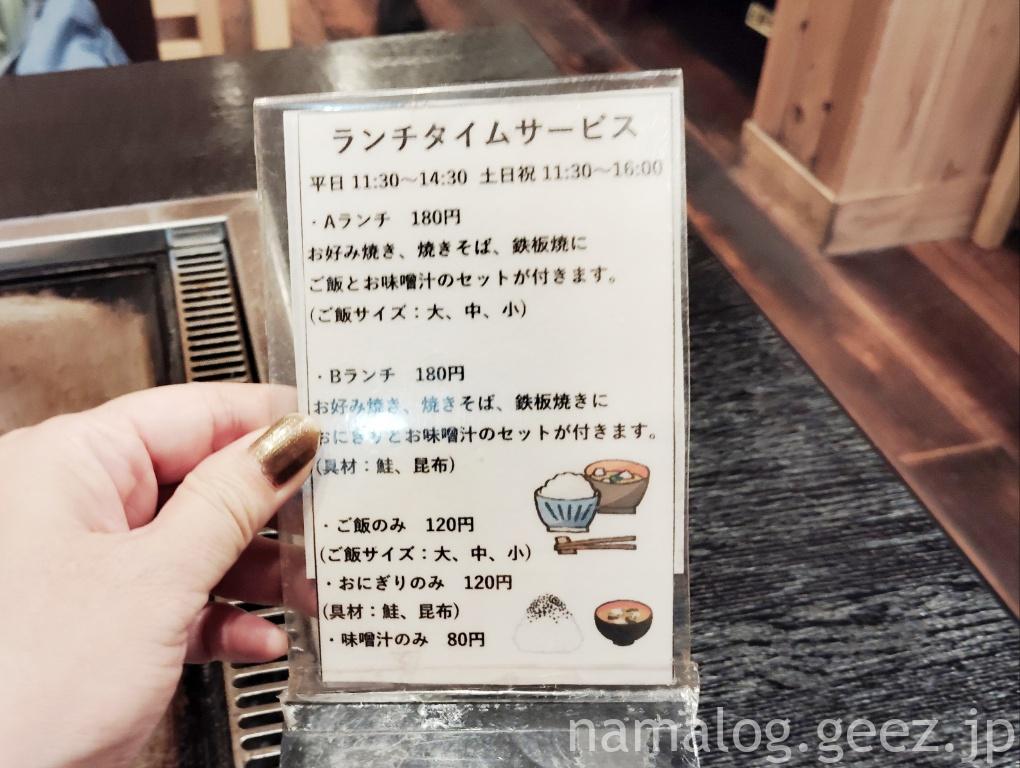 ランチタイムサービス
平日 11:30～14:30 土日祝 11:30～16:00
・Aランチ 180円
お好み焼き、焼きそば、鉄板焼に
ご飯とお味噌汁のセットが付きます。
(ご飯サイズ：大、中、小)
・Bランチ 180円
お好み焼き、焼きそば、鉄板焼きに
おにぎりとお味噌汁のセットが付きます。
(具材：鮭、昆布)
・ご飯のみ 120円
(ご飯サイズ：大、中、小)
・おにぎりのみ 120円
(具材：鮭、昆布)
・味噌汁のみ 80円
namalog.geez.jp